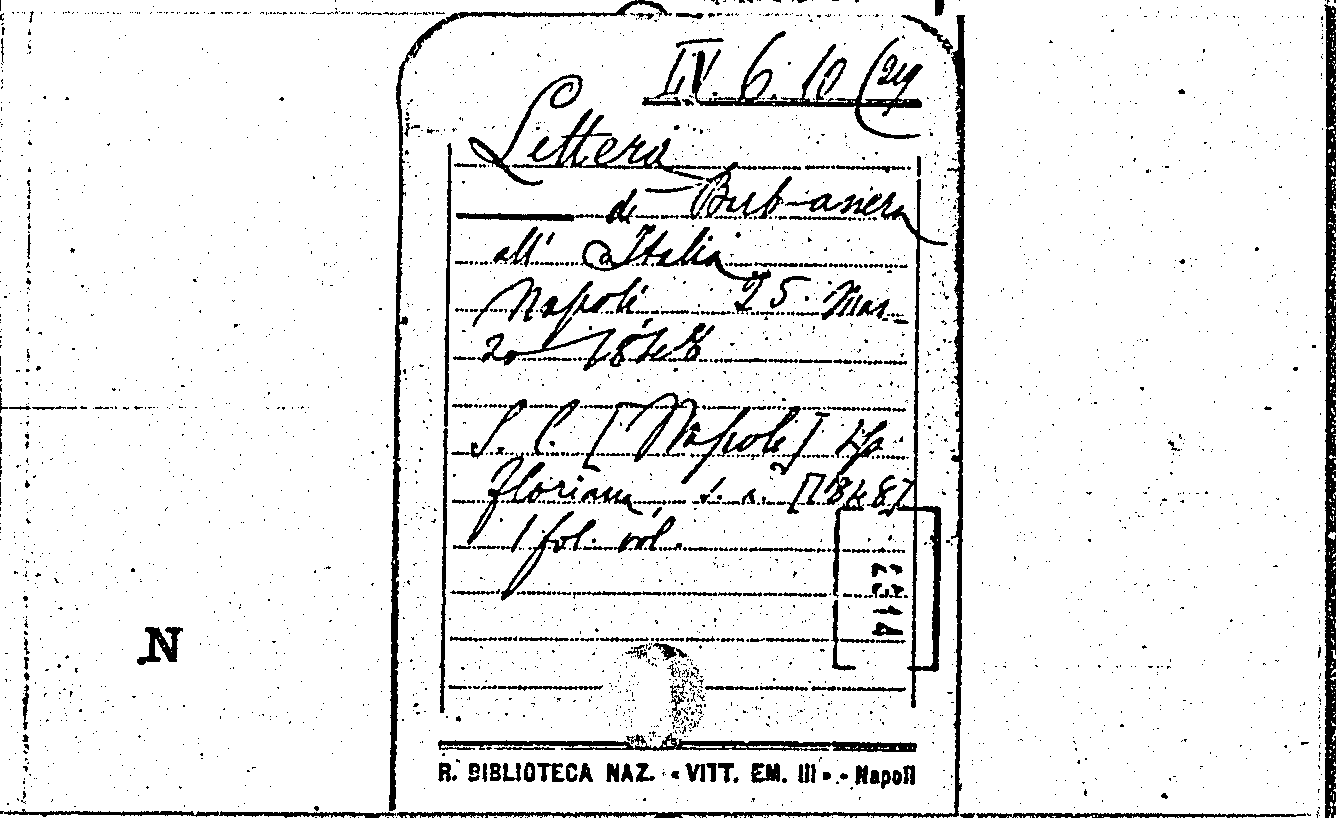 LV. 6. 10 (24
Lettera
di Bub-anera
all' Italia
Napoli 25. Mar-
zo 1848
S. l. [Napoli] tip.
floriana s. a. [1848]
1 fol. vol.
N
R. BIBLIOTECA NAZ. « VITT. EM. III » - Napoli